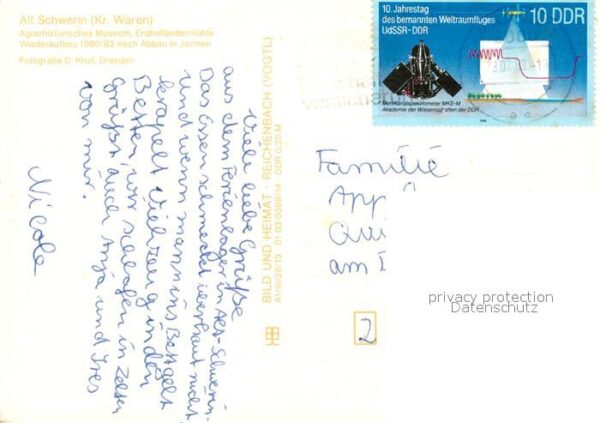 Alt Schwerin (Kr. Waren)
Agrarhistorisches Museum, Erdholländermühle
Wiederaufbau 1980/82 nach Abbau in Jarmen
Fotografie D. Krull, Dresden
BILD UND HEIMAT · REICHENBACH (VOGTL)
DDR 0,20 M
10. Jahrestag
des bemannten Weltraumfluges
UdSSR-DDR
10 DDR
Multikanalspektrometer MKS-M
Akademie der Wissenschaften der DDR
Viele liebe Grüße
aus dem Ferienlager in Alt-Schwerin.
Das Essen schmeckt überhaupt nicht
und wenn man ins Bett geht
krapelt Viehzeug in den
Betten, wir schlafen in Zelten
Grüßt auch Anja und Ines
von mir.
Nicole
Familie
App
Qui
am
2
privacy protection
Datenschutz